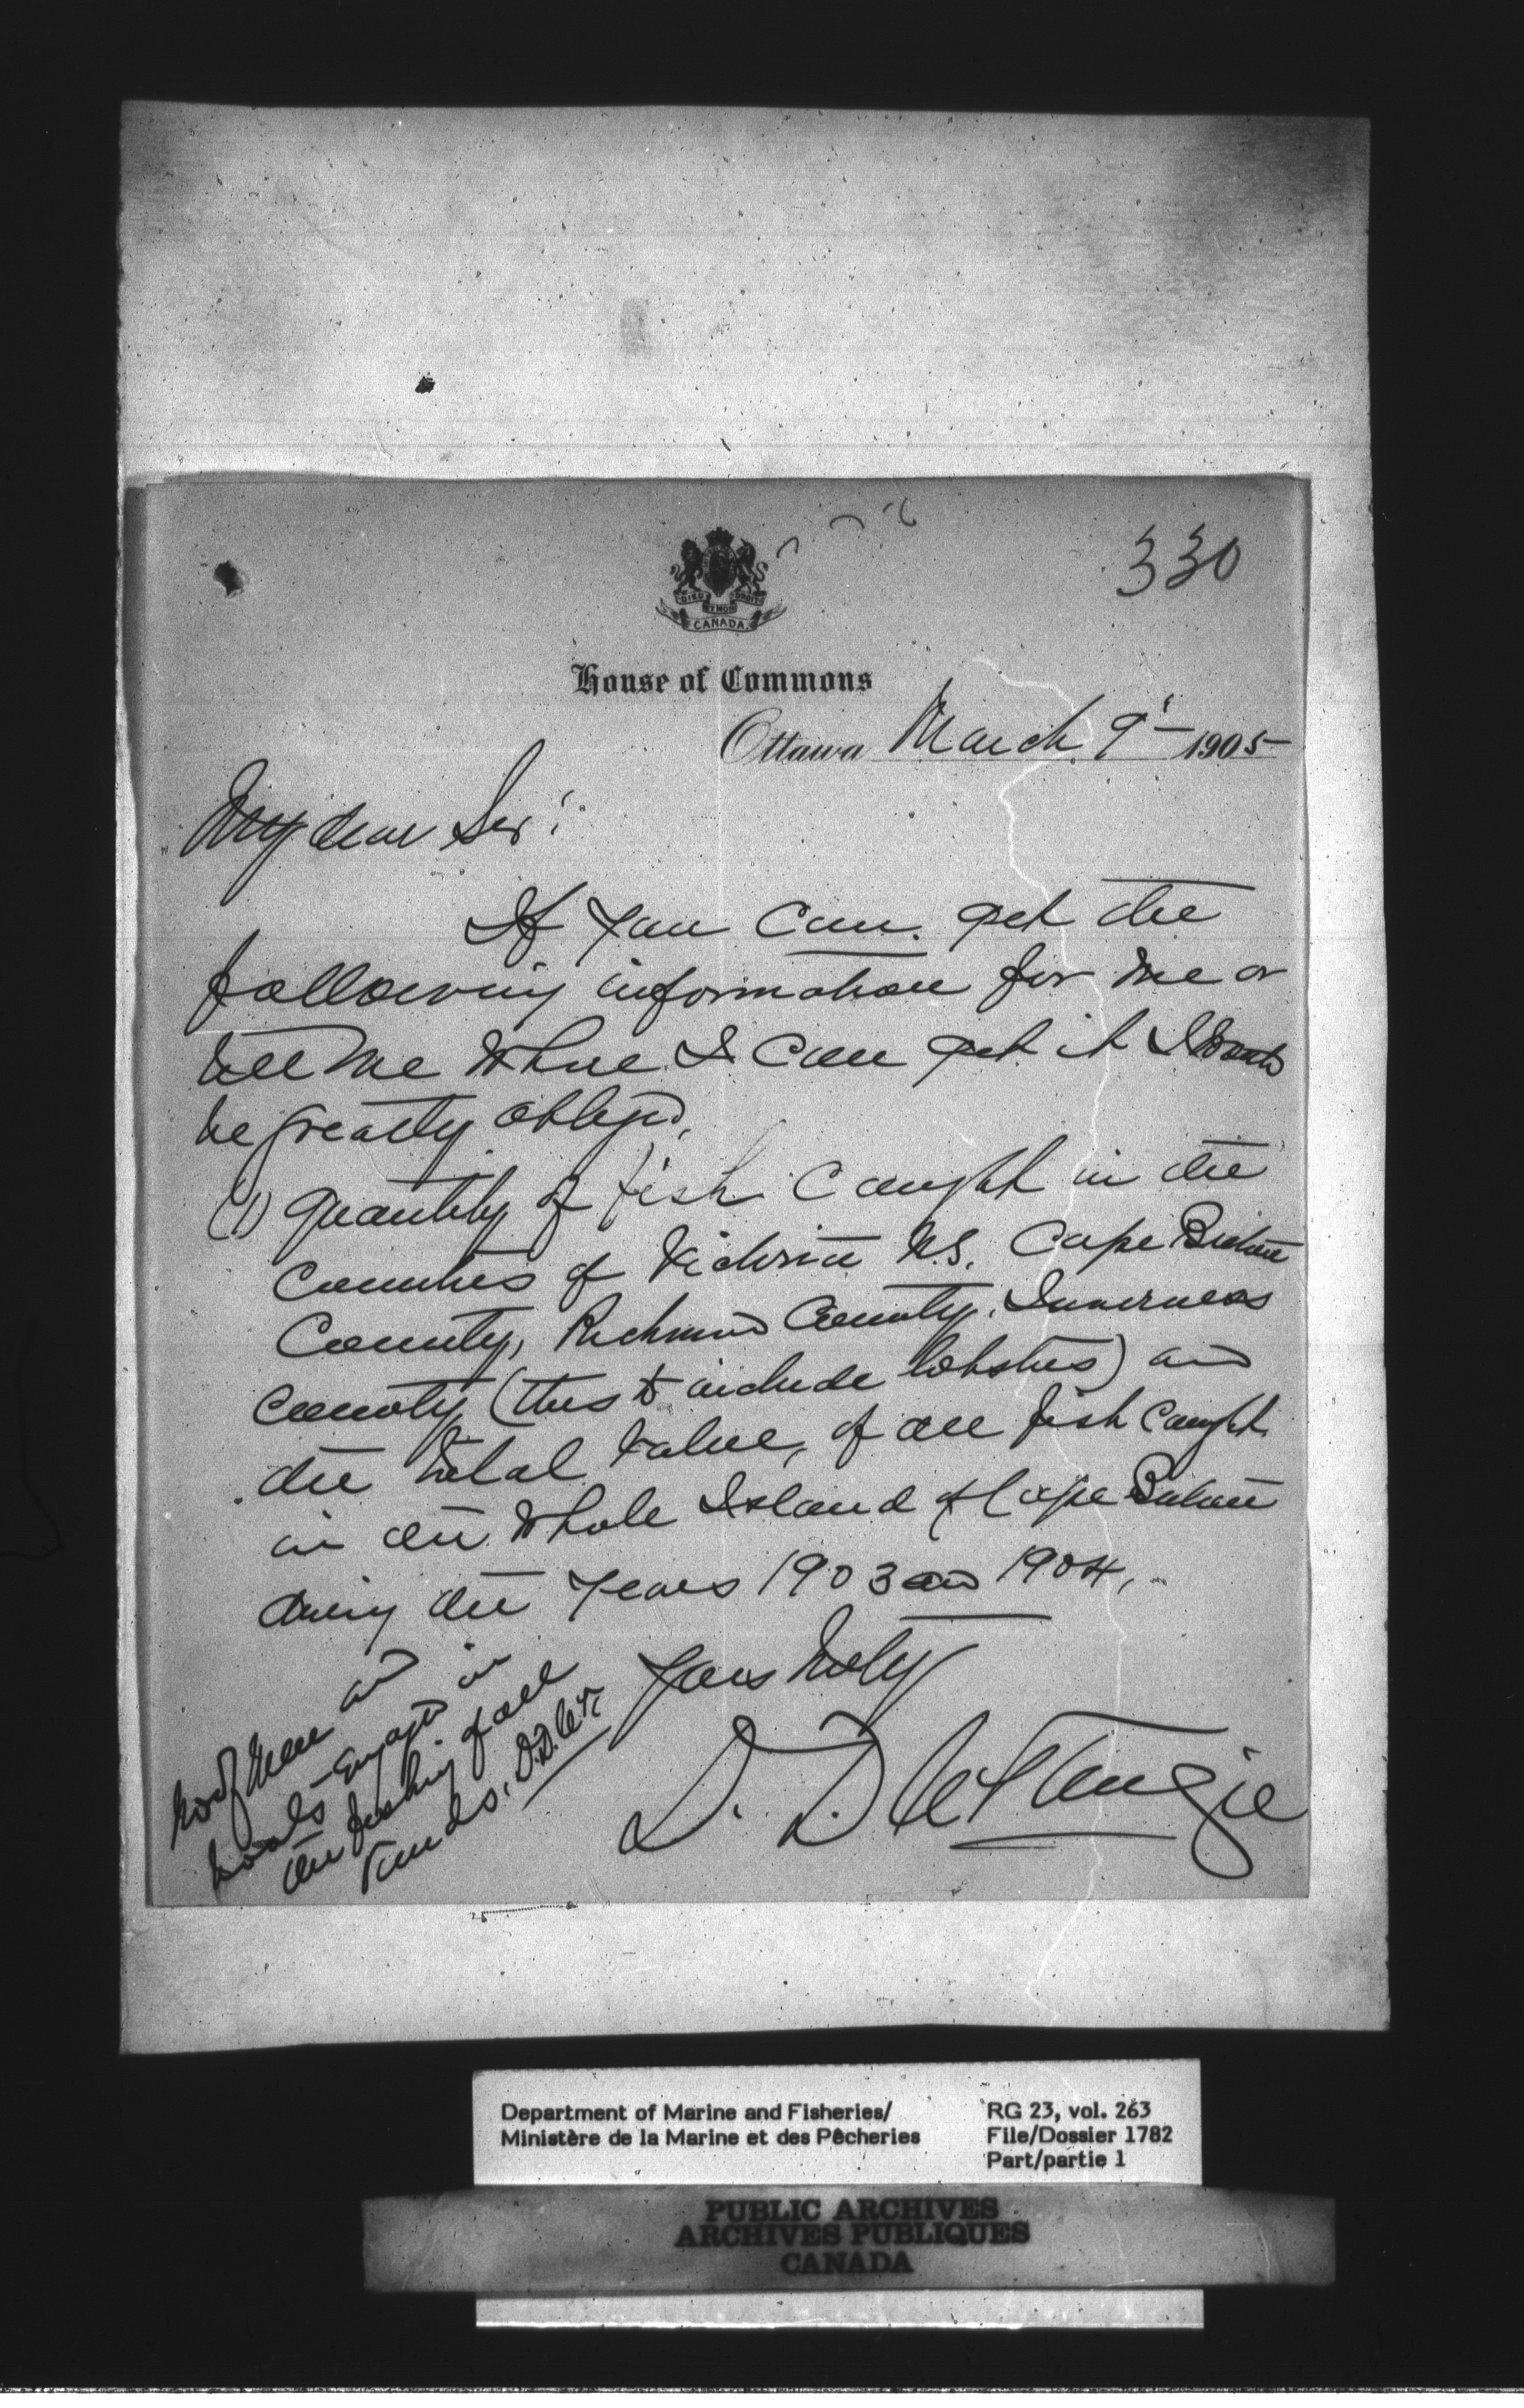 330
DIEU ET MON DROIT
CANADA
House of Commons
Ottawa March 9' 1905
My dear Sir:
If you can get the
following information for me or
tell me where I can get it I would
be greatly obliged.
(1) Quantity of fish caught in the
Counties of Victoria N.S. Cape Breton
County, Richmond County, Inverness
County (this to include lobsters) and
the total value, of all fish caught
in the whole Island of Cape Breton
during the years 1903 and 1904.
Yours truly
D. D. McKenzie
No of men and
boats engaged in
the fishing of all
kinds. D.D. McK
Department of Marine and Fisheries/
Ministère de la Marine et des Pêcheries
RG 23, vol. 263
File/Dossier 1782
Part/partie 1
PUBLIC ARCHIVES
ARCHIVES PUBLIQUES
CANADA